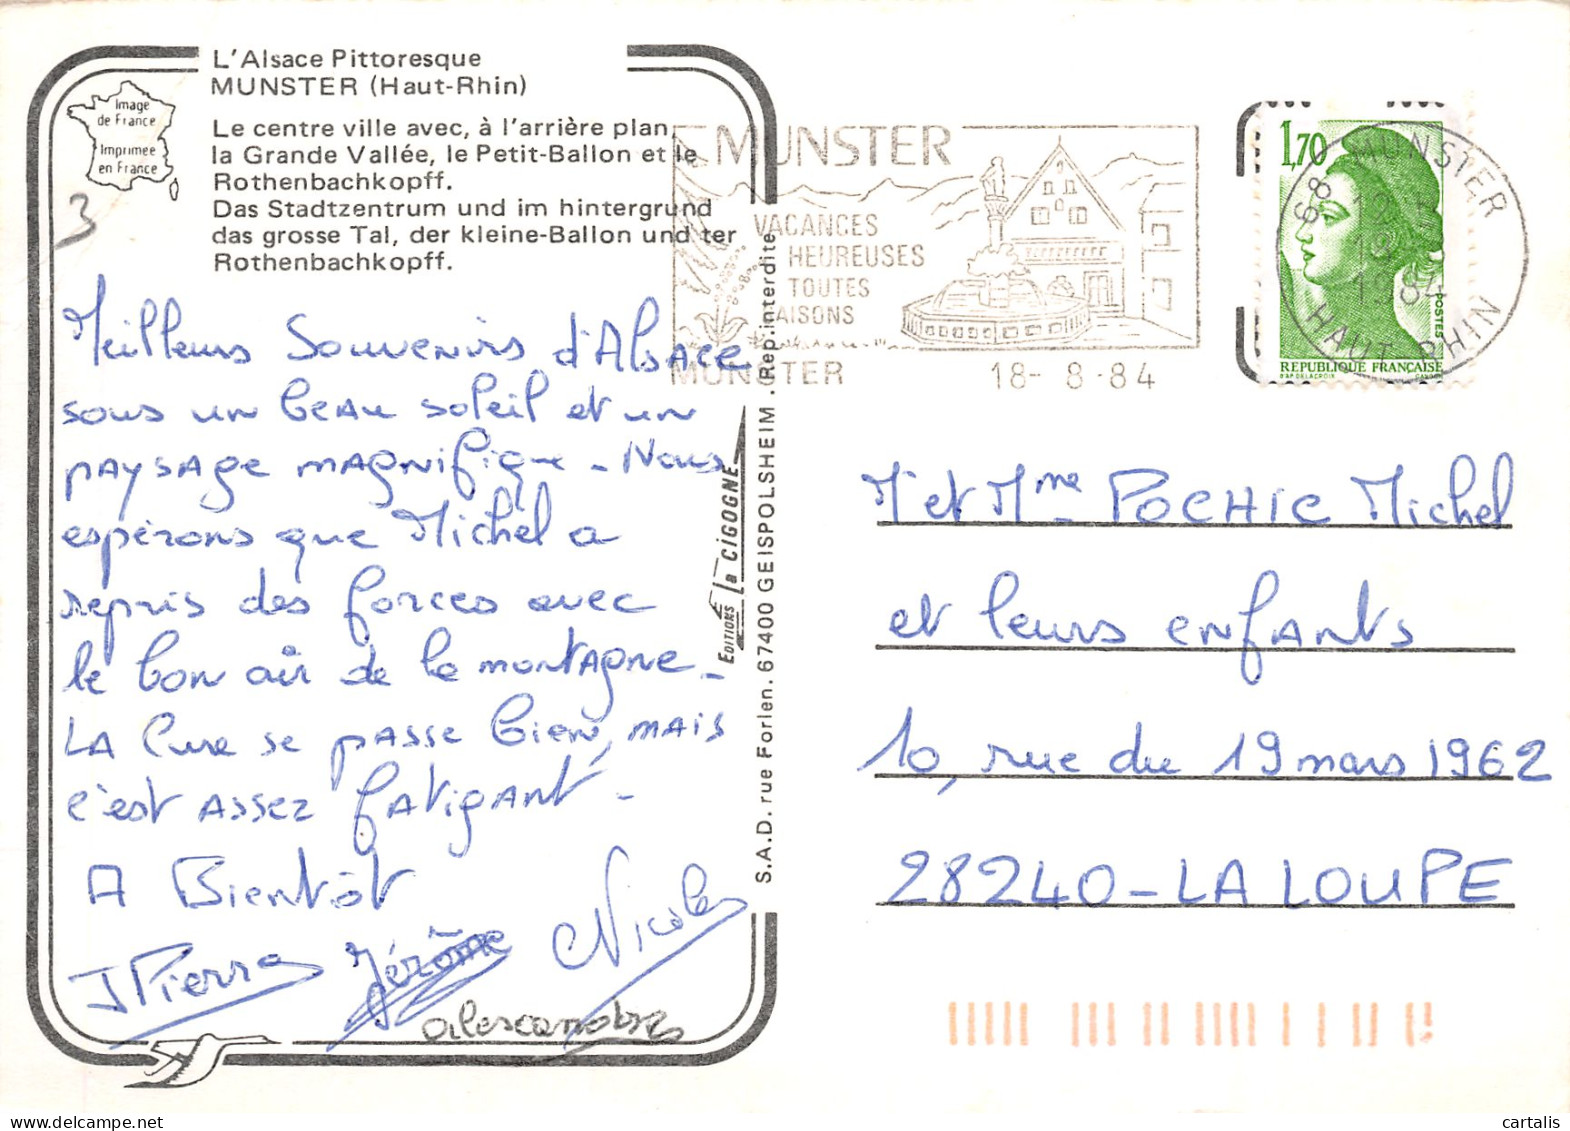 L'Alsace Pittoresque
MUNSTER (Haut-Rhin)
Image
de France
Imprimée
en France
Le centre ville avec, à l'arrière plan,
la Grande Vallée, le Petit-Ballon et le
Rothenbachkopff.
Das Stadtzentrum und im hintergrund
das grosse Tal, der kleine-Ballon und ter
Rothenbachkopff.
3
Meilleurs Souvenirs d'Alsace
sous un beau soleil et un
paysage magnifique - Nous
espérons que Michel a
repris des forces avec
le bon air de la montagne -
LA Cure se passe bien, mais
c'est assez fatigant -
A Bientôt
J Pierre Jérôme Nicolas
Editions La CIGOGNE
S.A.D. rue Forlen. 67400 GEISPOLSHEIM . Rep. interdite
MUNSTER
VACANCES
HEUREUSES
TOUTES
SAISONS
MUNSTER 18- 8 -84
1,70
POSTES
REPUBLIQUE FRANÇAISE
D'AP. DELACROIX GANDON
68 MUNSTER
1984
HAUT RHIN
Mr et Mme POCHIC Michel
et leurs enfants
10, rue du 19 mars 1962
28240 - LA LOUPE
cartalis